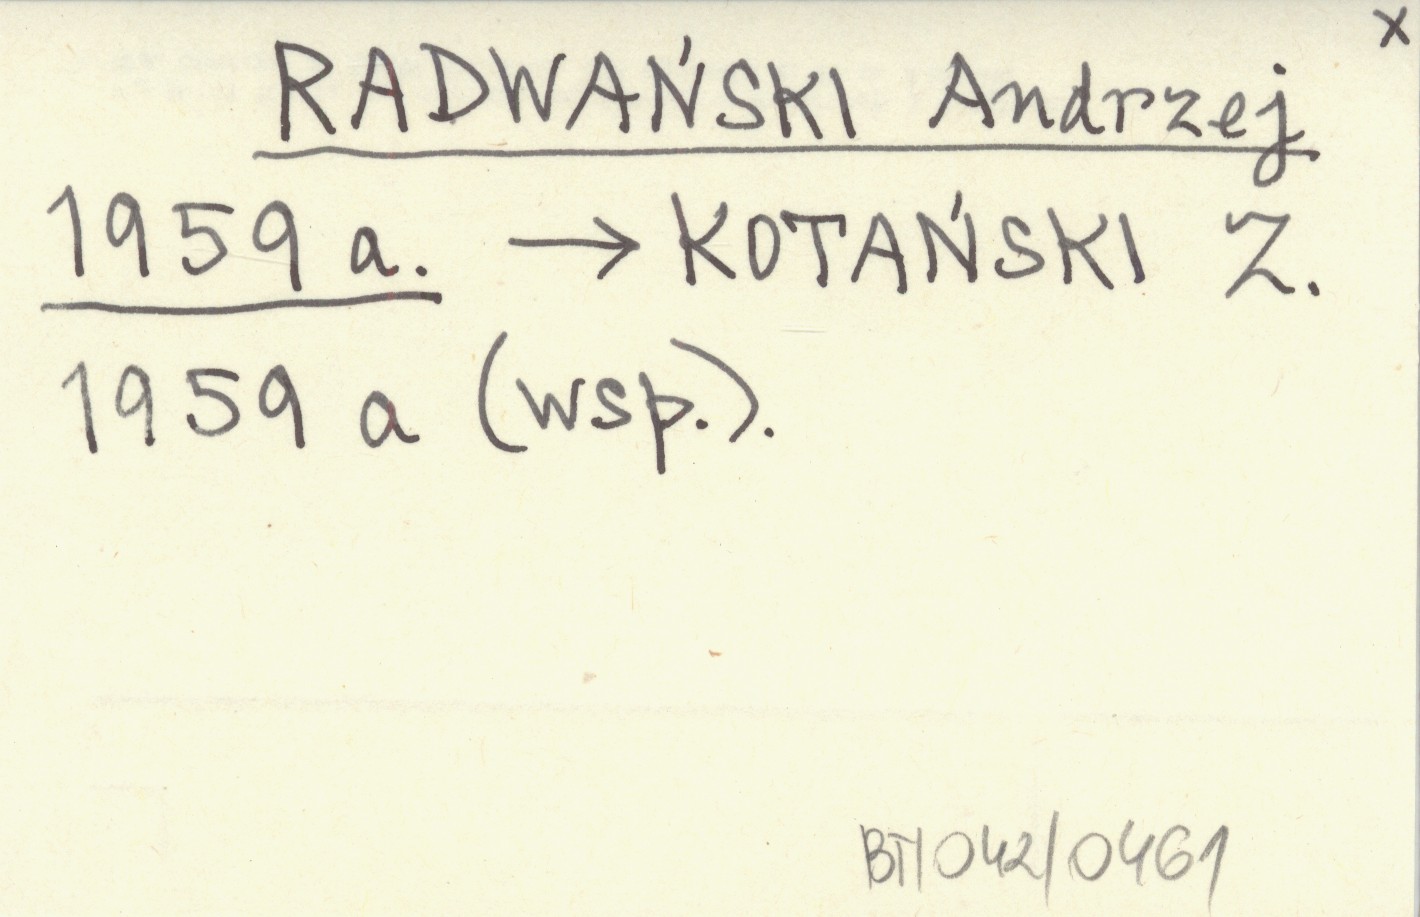 x
RADWAŃSKI Andrzej
1959 a. → KOTAŃSKI Z.
1959 a (wsp.).
BT/042/0461